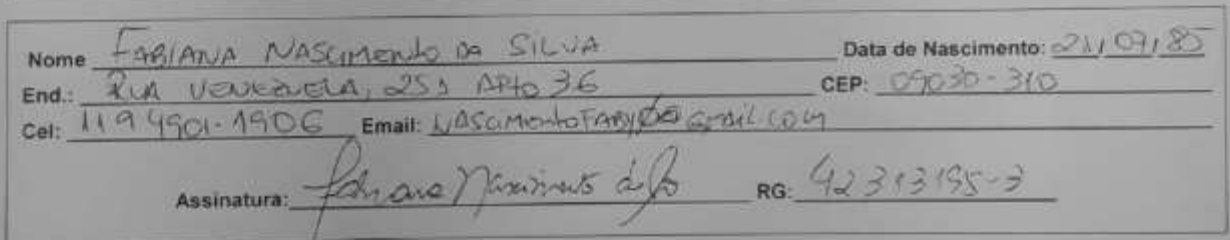 Nome FABIANA NASCIMENTO DA SILVA Data de Nascimento: 21/07/85
End.: RUA VENEZUELA, 251 APTO 36 CEP: 09030-310
Cel: 11 9 4901-1906 Email: NASCIMENTOFABY@GMAIL.COM
Assinatura: Nascimento da RG: 42313195-3